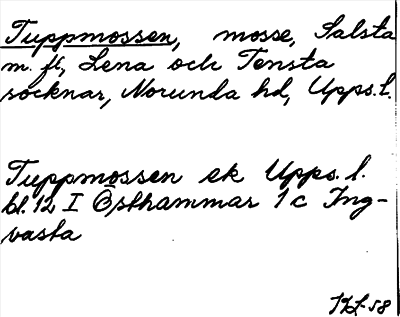 Tuppmossen, mosse, Salsta
m. fl., Lena och Tensta
socknar, Norunda hd, Upps. l.
Tuppmossen ek Upps. l.
bl. 12 I Östhammar 1 c Ing-
vasta